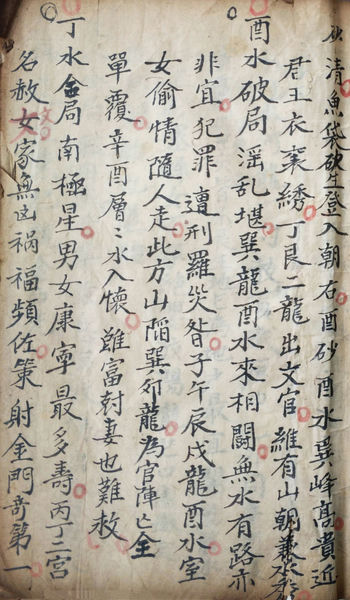 清魚袋砂生登入朝右酉砂酉水巽峰高貴近
君王衣裏綉丁艮二龍出文官維有山朝兼水秀
酉水破局淫乱堪巽龍酉水來相鬪無水有路亦
非宜犯罪遭刑羅災咎子午辰戌龍酉水室
女偷情隨人走此方山陷巽卯龍為官陣亡全
單覆辛酉層〻水入懷雖富尅妻也難救
丁水合局南極星男女康寧最多壽丙丁二宮
名赦女家無凶禍福頻佐策射金門奇第一